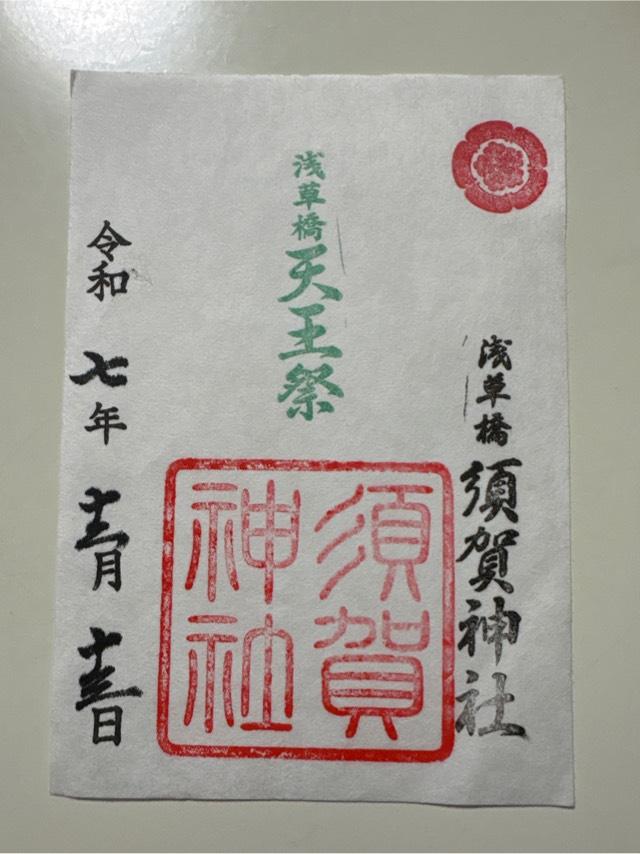 浅草橋 須賀神社
浅草橋 天王祭
須賀
神社
令和 七年 十二月 十三日